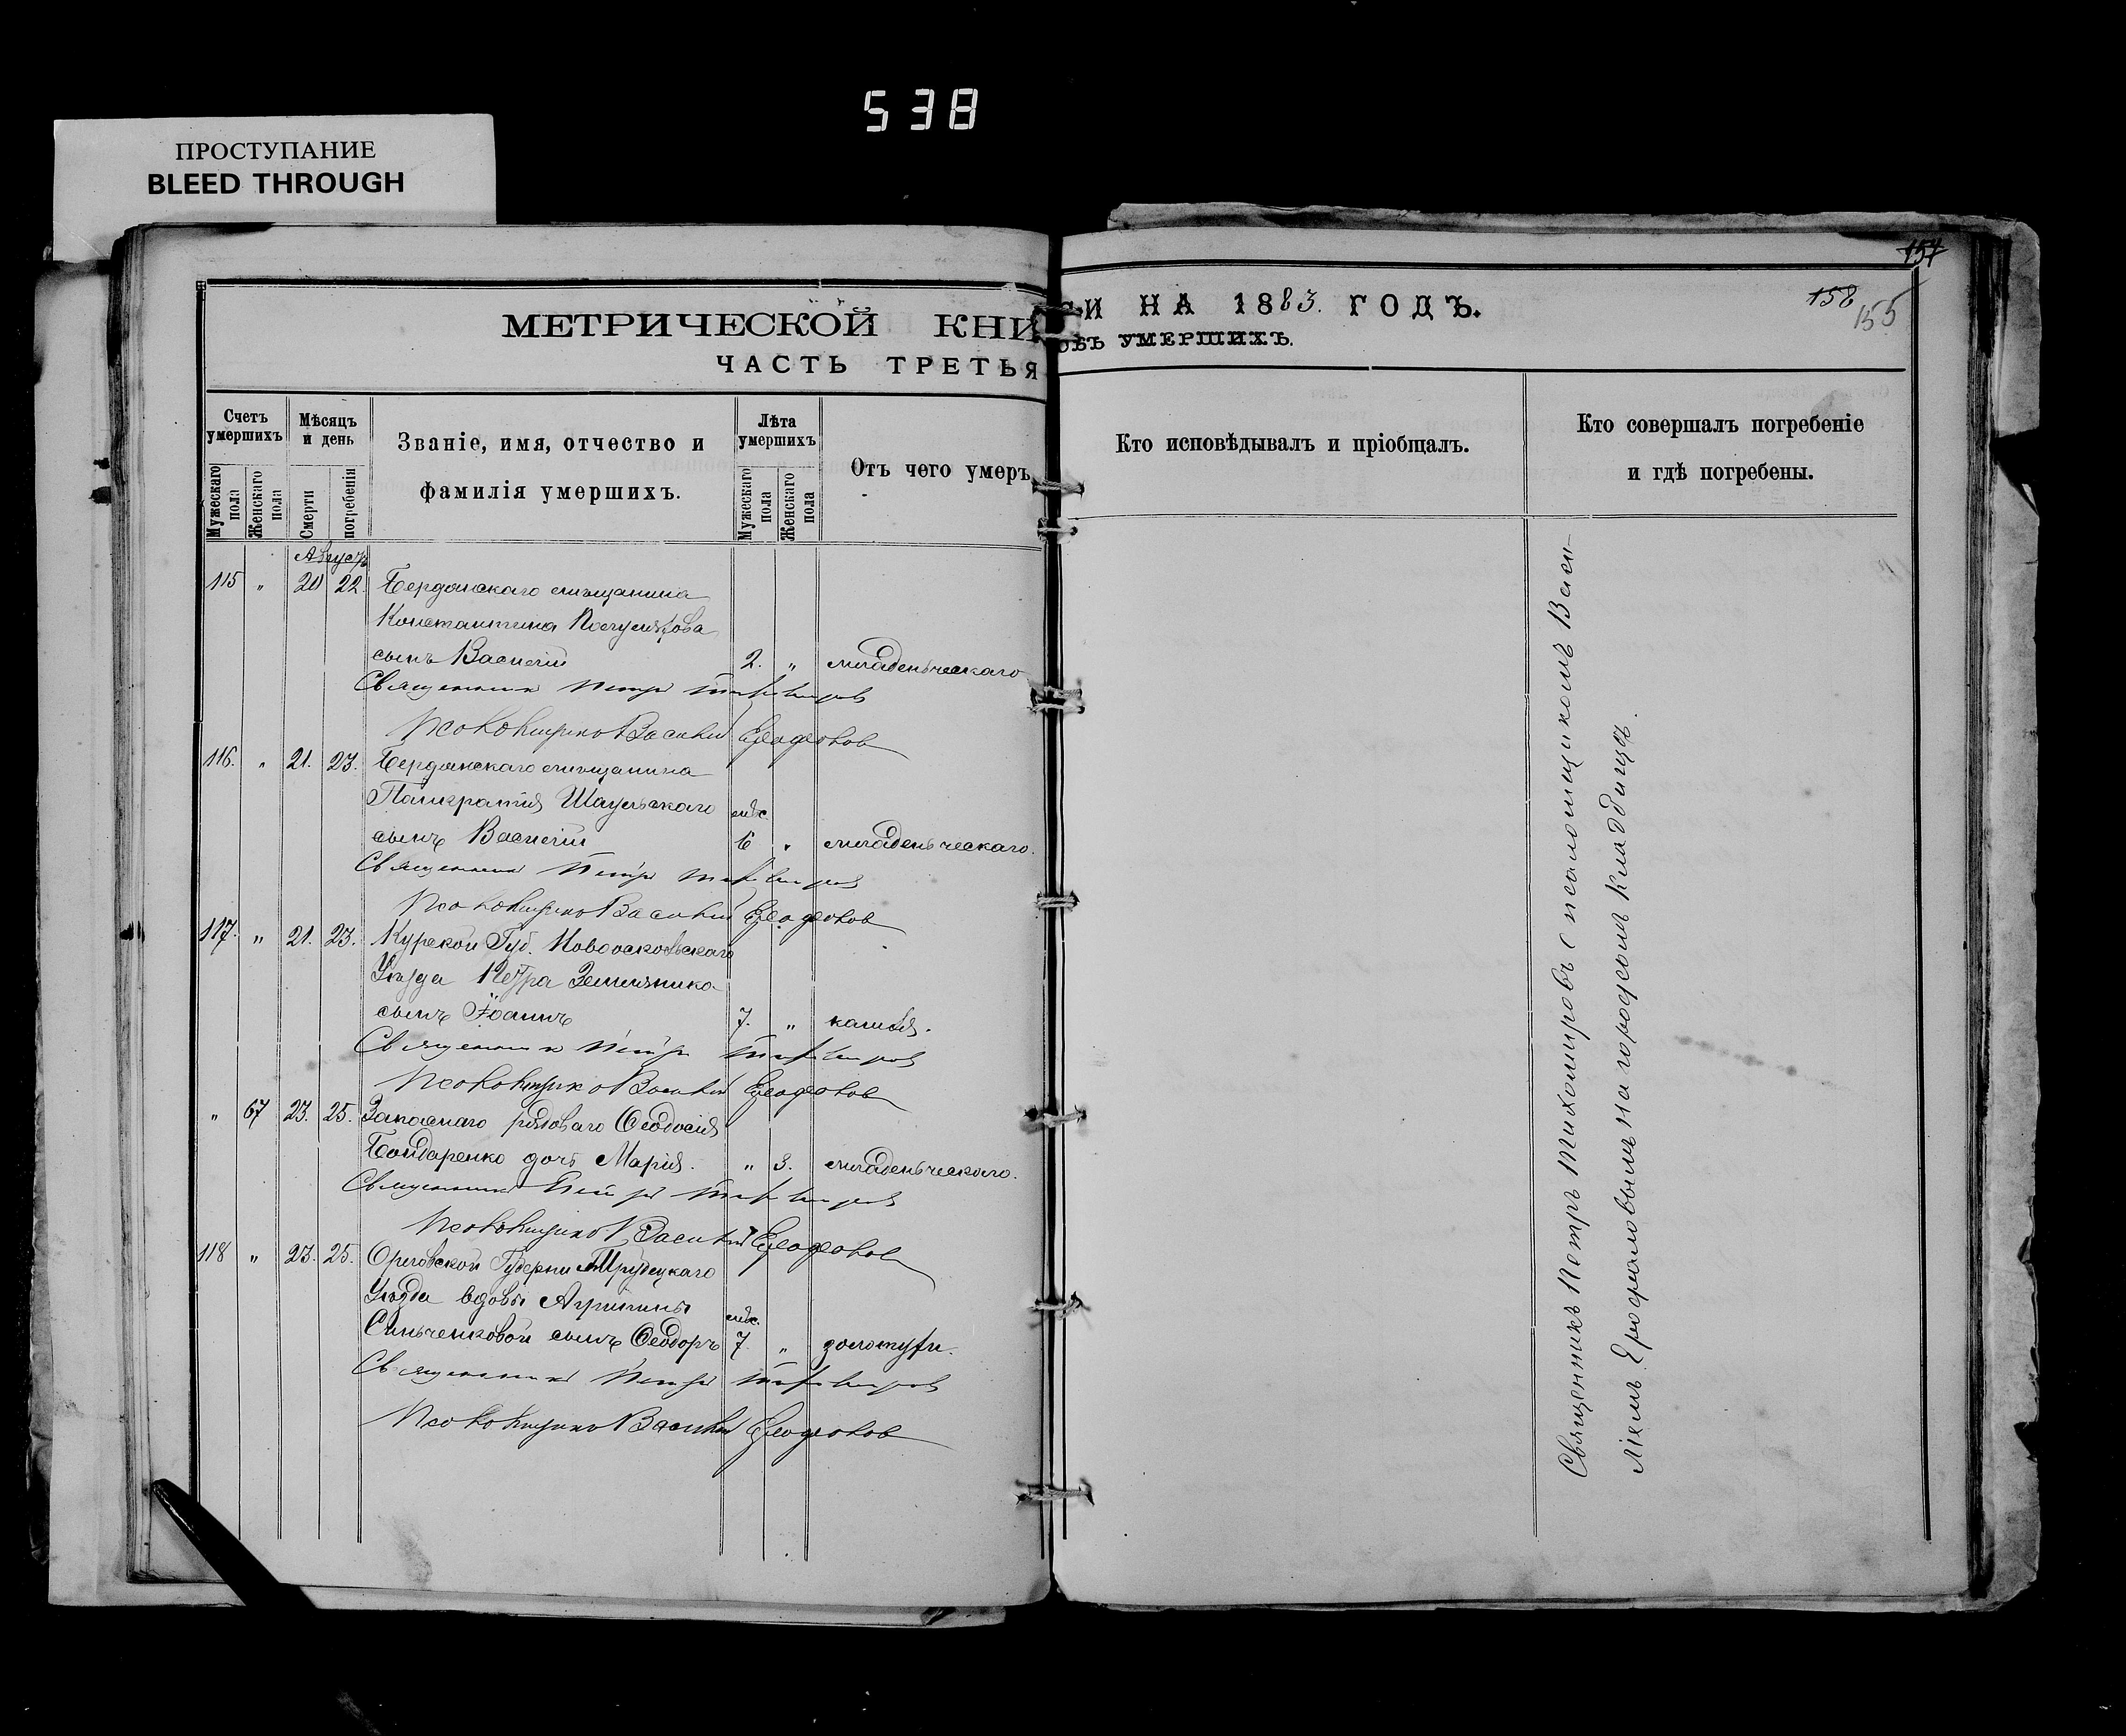 538
ПРОСТУПАНИЕ
BLEED THROUGH
МЕТРИЧЕСКОЙ КНИ
ЧАСТЬ ТРЕТЬЯ
Счетъ умершихъ
Мужескаго пола
Женскаго пола
Мѣсяцъ и день
Смерти
погребенія
Званіе, имя, отчество и
фамилія умершихъ.
Лѣта умершихъ
Мужескаго пола
Женскаго пола
Отъ чего умеръ
Августъ
115 " 20 22. Бердянскаго мѣщанина
Константина
сынъ Василій 2. " младенческаго
Священникъ Петръ Тихомировъ
Псаломщикъ Василій
116. " 21. 23. Бердянскаго мѣщанина
Панкратія Шаульскаго мѣс.
сынъ Василій 6 " младенческаго.
Священникъ Петръ Тихомировъ
Псаломщикъ Василій
117. " 21. 23. Курской Губ. Новооскольскаго
Уѣзда Петра
сынъ Іоаннъ 7. " кашля.
Священникъ Петръ Тихомировъ
Псаломщикъ Василій
" 67 23. 25. Запаснаго рядоваго Ѳеодосія
Бондаренко дочь Марія. " 3. младенческаго.
Священникъ Петръ Тихомировъ
Псаломщикъ Василій
118 " 23. 25. Орловской Губерніи
Уѣзда вдовы Агрипины мѣс.
Синьченковой сынъ Ѳеодоръ 7. " золотухи.
Священникъ Петръ Тихомировъ
Псаломщикъ Василій
157
158
155
ГИ НА 1883. ГОДЪ.
ОБЪ УМЕРШИХЪ.
Кто исповѣдывалъ и пріобщалъ.
Кто совершалъ погребеніе
и гдѣ погребены.
Священникъ Петръ Тихомировъ с псаломщикомъ Васи-
ліемъ на городскомъ кладбищѣ.